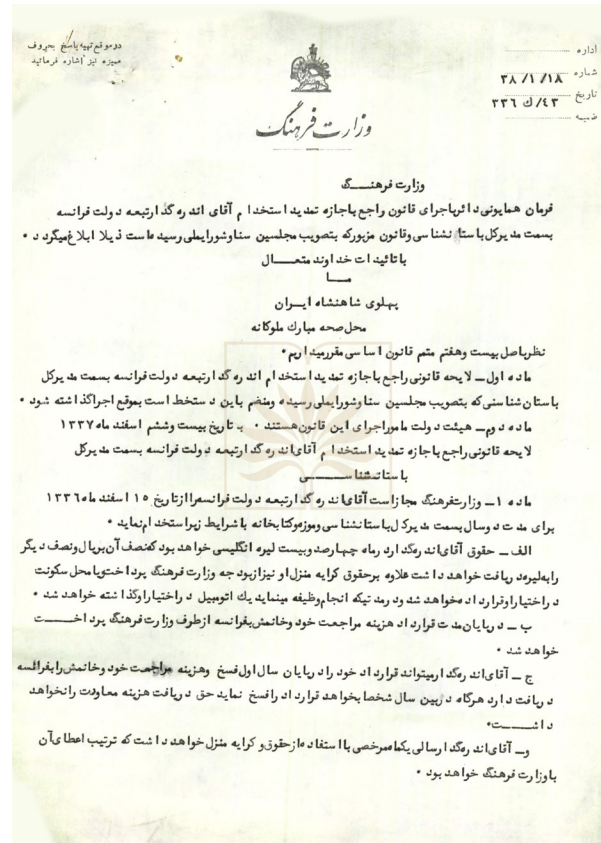 در موقع تهیه پاسخ بحروف
ممیزه نیز اشاره فرمائید
اداره
شماره ۳۸/۱/۱۸
تاریخ ۴۳/ك ۳۳۶
ضمیمه
وزارت فرهنگ
وزارت فرهنــــگ
فرمان همایونی دائر باجرای قانون راجع باجازه تمدید استخدام آقای اندره گدار تبعه دولت فرانسه
بسمت مدیر کل باستانشناسی و قانون مزبور که بتصویب مجلسین سنا و شورایملی رسیده است ذیلا ابلاغ میگردد ۰
با تائیدات خداوند متعـــال
مـــا
پهلوی شاهنشاه ایــران
محل صحه مبارك ملوکانه
نظر باصل بیست و هفتم متمم قانون اساسی مقرر میداریم ۰
ماده اول ـ لایحه قانونی راجع باجازه تمدید استخدام اندره گدار تبعه دولت فرانسه بسمت مدیر کل
باستان شناسی که بتصویب مجلسین سنا و شورایملی رسیده و منضم باین دستخط است بموقع اجرا گذاشته شود ۰
ماده دوم ـ هیئت دولت مامور اجرای این قانون هستند ۰ به تاریخ بیست و ششم اسفند ماه ۱۳۳۷
لایحه قانونی راجع باجازه تمدید استخدام آقای اندره گدار تبعه دولت فرانسه بسمت مدیر کل
باستانشناســـی
ماده ۱ ـ وزارت فرهنگ مجاز است آقای اندره گدار تبعه دولت فرانسه را از تاریخ ۱۵ اسفند ماه ۱۳۳۶
برای مدت دو سال بسمت مدیر کل باستانشناسی و موزه و کتابخانه با شرایط زیر استخدام نماید ۰
الف ـ حقوق آقای اندره گدار در ماه چهارصد و بیست لیره انگلیسی خواهد بود که نصف آن بریال و نصف دیگر
را به لیره دریافت خواهد داشت علاوه بر حقوق کرایه منزل او نیز از بودجه وزارت فرهنگ پرداخت و یا محل سکونت
در اختیار او قرار داده خواهد شد و در مدتیکه انجام وظیفه مینماید یك اتومبیل در اختیار او گذاشته خواهد شد ۰
ب ـ در پایان مدت قرارداد هزینه مراجعت خود و خانمش بفرانسه از طرف وزارت فرهنگ پرداخـــت
خواهد شد ۰
ج ـ آقای اندره گدار میتواند قرارداد خود را در پایان سال اول فسخ و هزینه مراجعت خود و خانمش را بفرانسه
دریافت دارد هرگاه در بین سال شخصا بخواهد قرارداد را فسخ نماید حق دریافت هزینه معاودت را نخواهد
داشـــت۰
و ـ آقای اندره گدار سالی یکماه مرخصی با استفاده از حقوق و کرایه منزل خواهد داشت که ترتیب اعطای آن
با وزارت فرهنگ خواهد بود ۰